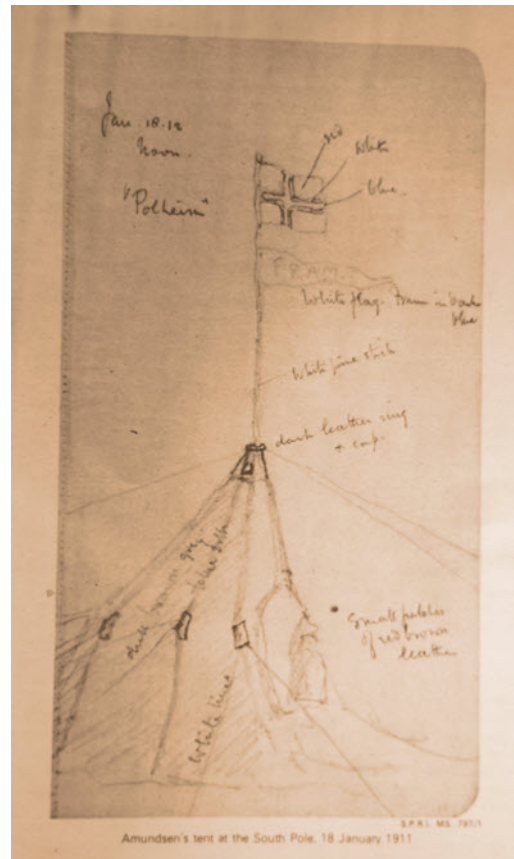 Jan. 18. 12
Noon.
"Polheim"
red
white
blue.
F.R.A.M.
White flag. Fram in dark
blue
White pine stick
dark leather ring
+ cap.
dull brown grey
White line
Small patches
of red brown
leather
S.P.R.I. MS. 797/1
Amundsen's tent at the South Pole, 18 January 1911